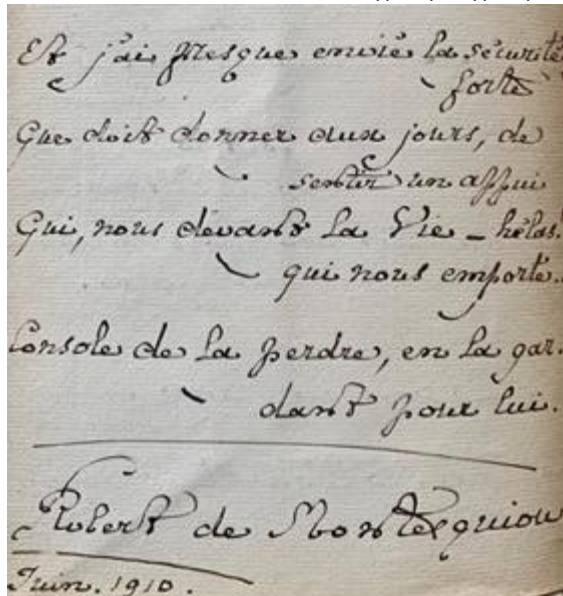 Et j'ai presque envié la sécurité
forte
Que doit donner aux jours, de
sentir un appui
Qui, nous devant la Vie _ hélas!
qui nous emporte.
Console de la perdre, en la gar.
dant pour lui.
Robert de Montesquiou
Juin. 1910.